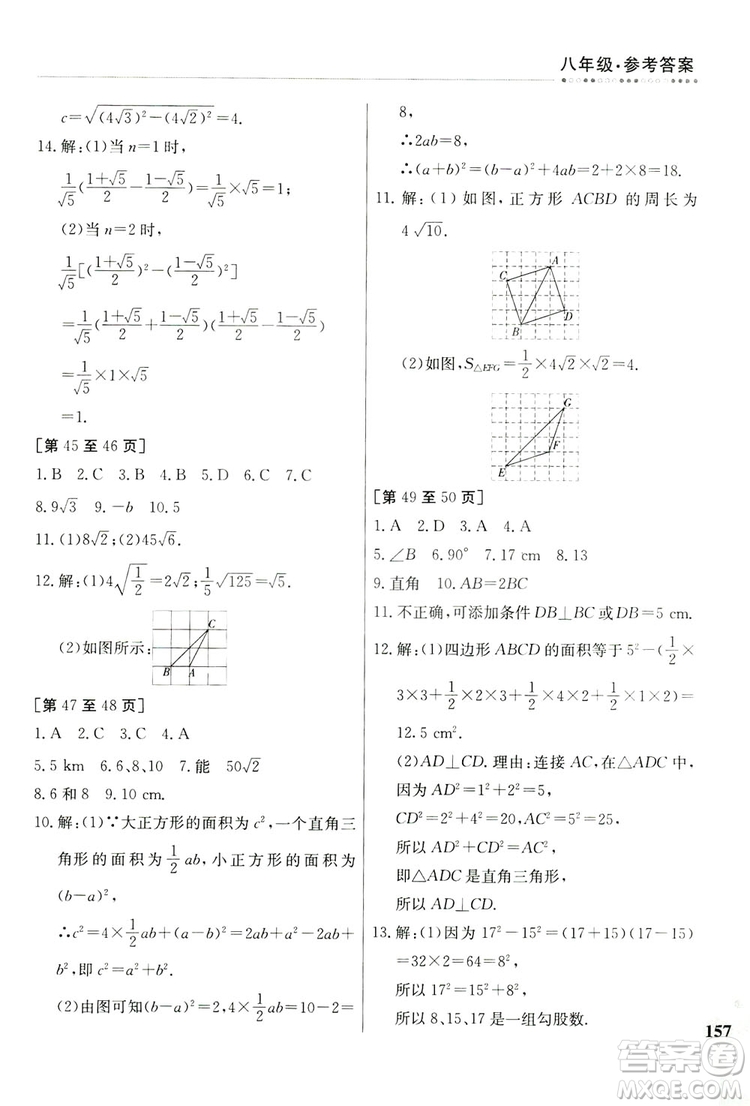 八年级·参考答案
c=√((4√3)²−(4√2)²)=4.
14.解:(1)当 n=1时,
1/√5((1+√5)/2−(1−√5)/2)=1/√5×√5=1;
(2)当 n=2时,
1/√5[((1+√5)/2)²−((1−√5)/2)²]
=1/√5((1+√5)/2+(1−√5)/2)((1+√5)/2−(1−√5)/2)
=1/√5×1×√5
=1.
[第 45 至 46 页]
1.B 2.C 3.B 4.B 5.D 6.C 7.C
8.9√3 9.−b 10.5
11.(1)8√2;(2)45√6.
12.解:(1)4√(1/2)=2√2;1/5√125=√5;
(2)如图所示:
C
B A
[第 47 至 48 页]
1.A 2.C 3.A 4.C
5.5 km 6.6、8、10 7.能 50√2
8.6 和 8 9.10 cm.
10.解:(1)∵大正方形的面积为 c²,一个直角三
角形的面积为 1/2 ab,小正方形的面积为
(b−a)²,
∴c²=4×1/2 ab+(b−a)²=2ab+a²−2ab+
b²,即 c²=a²+b².
(2)由图可知(b−a)²=2,4×1/2 ab=10−2=
8,
∴2ab=8,
∴(a+b)²=(b−a)²+4ab=2+2×8=18.
11.解:(1)如图,正方形 ACBD 的周长为
4√10.
A
C
D
B
(2)如图,S△EFG=1/2×4√2×√2=4.
G
F
E
[第 49 至 50 页]
1.A 2.D 3.A 4.A
5.∠B 6.90° 7.17 cm 8.13
9.直角 10.AB=2BC
11.不正确,可添加条件 DB⊥BC或DA=5 cm.
12.解:(1)四边形 ABCD 的面积等于 5²−(1/2×
3×3+1/2×2×4+1/2×2×4+1/2×1×2)=
12.5 cm².
(2)AD⊥CD.理由:连接 AC,在△ADC 中,
因为 AD²=1²+2²=5,
CD²=2²+4²=20,AC²=5²=25,
所以 AD²+CD²=AC²,
即△ADC 是直角三角形,
所以 AD⊥CD.
13.解:(1)因为 17²−15²=(17+15)(17−15)
=32×2=64=8²,
所以 17²=15²+8²,
所以 8、15、17 是一组勾股数.
157
答案圈
MXQE.COM